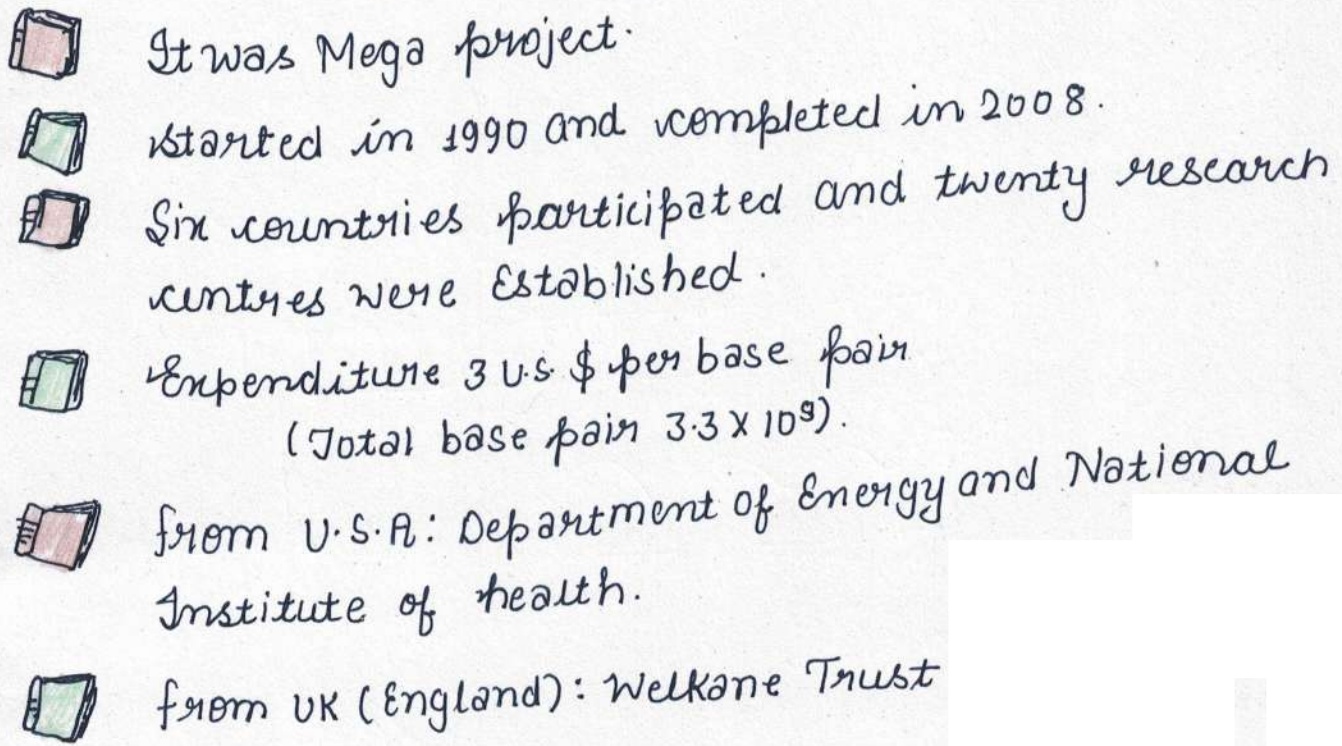 It was Mega project.
started in 1990 and completed in 2008.
Six countries participated and twenty research
centres were Established.
Expenditure 3 U.S. $ per base pair
(Total base pair 3.3 X 10⁹).
from U.S.A: Department of Energy and National
Institute of health.
from UK (England): Welkane Trust